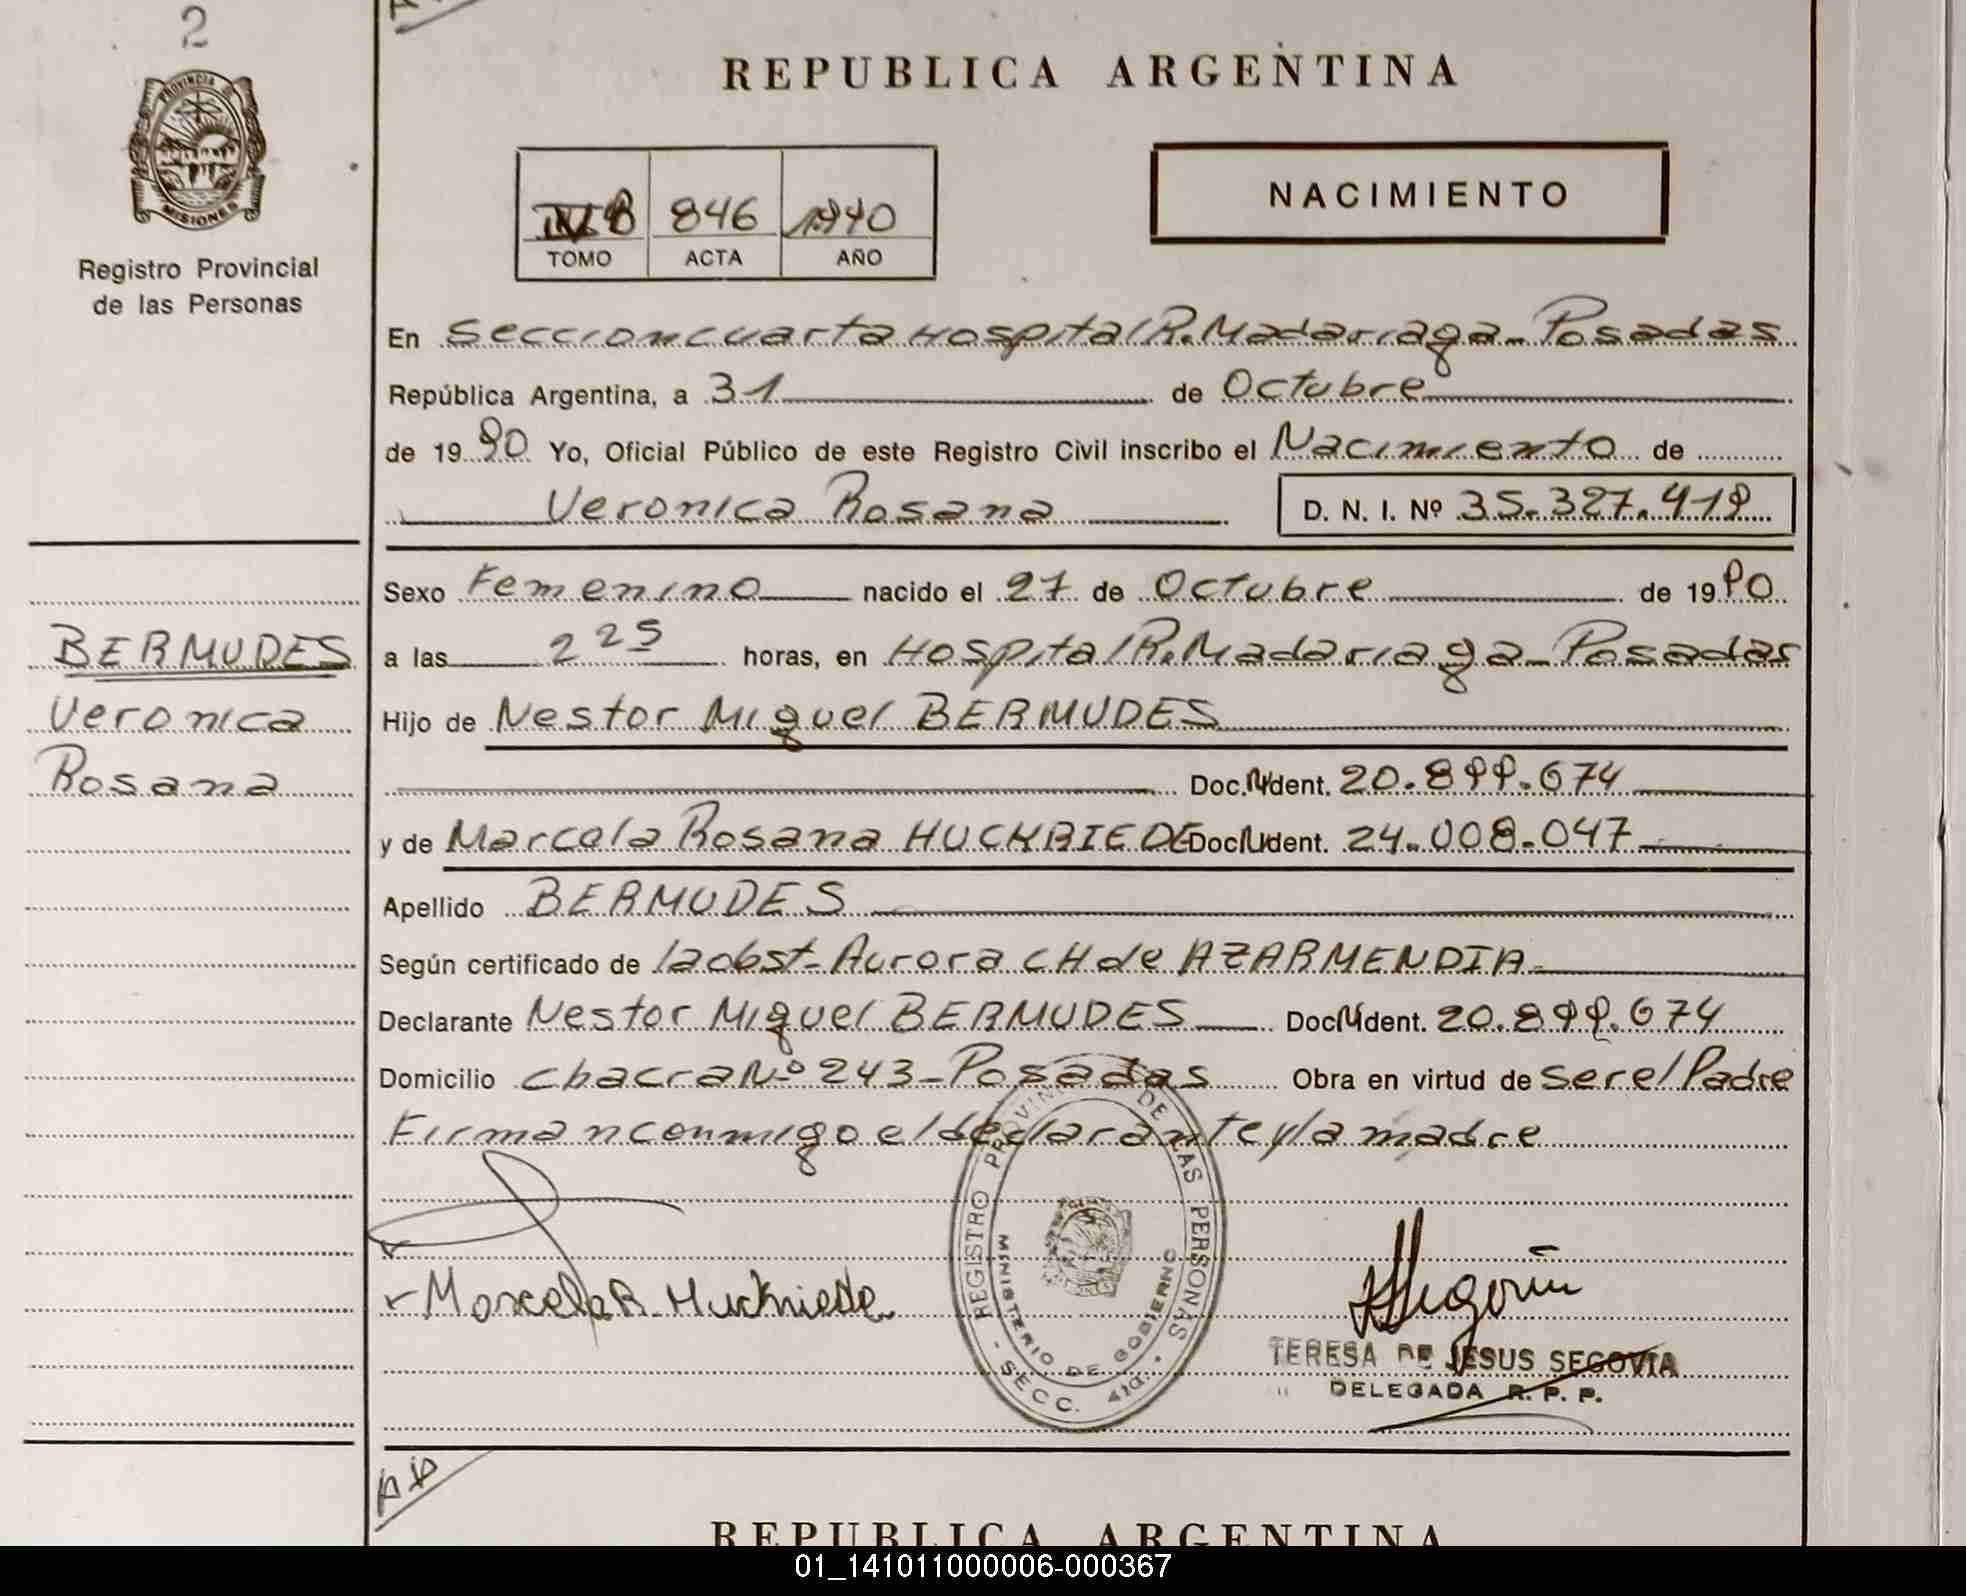 2
PROVINCIA DE
MISIONES
Registro Provincial
de las Personas
REPUBLICA ARGENTINA
NACIMIENTO
846 1990
TOMO ACTA AÑO
En Seccion cuarta Hospital R. Madariaga - Posadas
República Argentina, a 31 de Octubre
de 19 90 Yo, Oficial Público de este Registro Civil inscribo el Nacimiento de
Veronica Rosana D. N. I. Nº 35.327.419
Sexo Femenino nacido el 27 de Octubre de 19 90
BERMUDES
Veronica
Rosana
a las 2 25 horas, en Hospital R. Madariaga - Posadas
Hijo de Nestor Miguel BERMUDES
Doc. N. Ident. 20.899.674
y de Marcela Rosana HUCKRIEDE Doc N Ident. 24.008.047
Apellido BERMUDES
Según certificado de la obst - Aurora CH de AZARMENDIA
Declarante Nestor Miguel BERMUDES Doc N Ident. 20.899.674
Domicilio chacra Nº 243 - Posadas Obra en virtud de ser el Padre
Firman conmigo el declarante y la madre
REGISTRO PROVINCIAL DE LAS PERSONAS
MINISTERIO DE GOBIERNO
- SECC. 4ta. -
Marcela R. Huckriede
Segovia
TERESA DE JESUS SEGOVIA
DELEGADA R. P. P.
REPUBLICA ARGENTINA
01_141011000006-000367